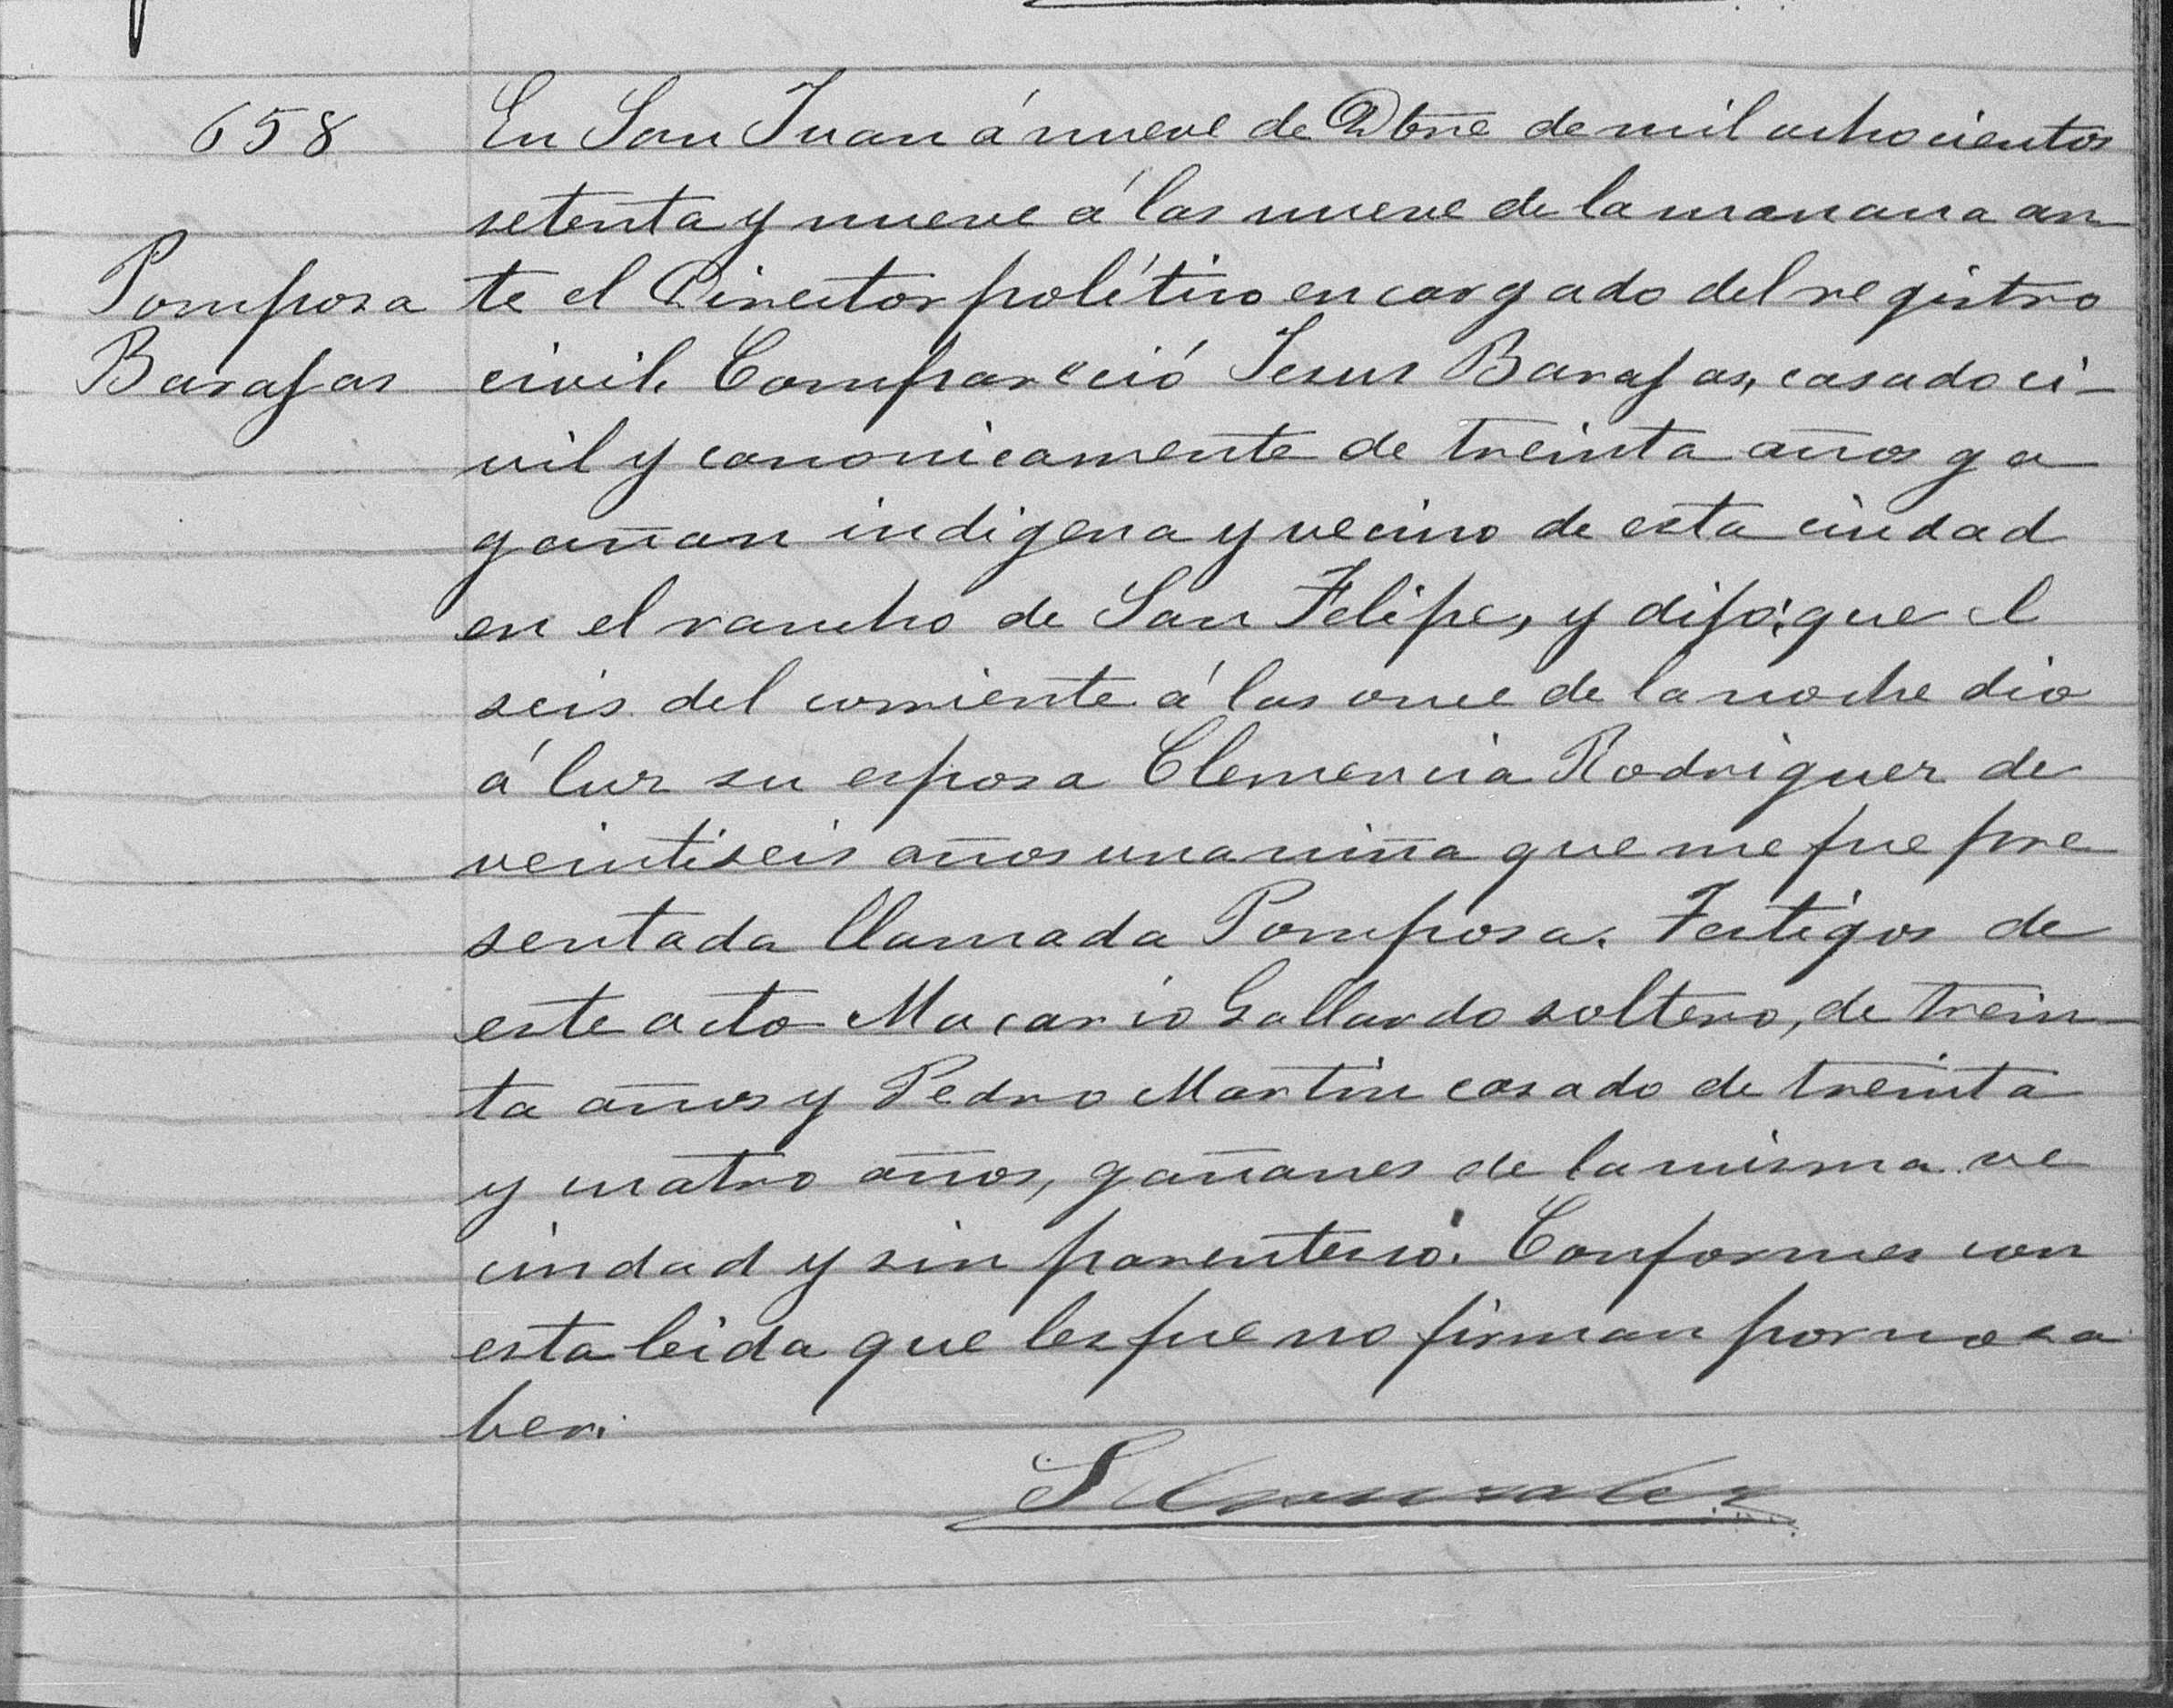 658
En San Juan á nueve de Dbre de mil ochocientos
setenta y nueve á las nueve de la manana an
Pomposa
te el Director político encargado del registro
Barajas
civil. Compareció Jesus Barajas, casado ci-
vil y canonicamente de treinta años ga
gañan indigena y vecino de esta ciudad
en el rancho de San Felipe, y dijo: que el
seis del corriente á las once de la noche dio
á luz su esposa Clemencia Rodriguez de
veintiseis años una niña que me fue pre
sentada llamada Pomposa. Testigos de
este acto Macario Gallardo soltero, de trein-
ta años y Pedro Martin casado de treinta
y cuatro años, gañanes de la misma ve
cindad y sin parentesco. Conformes con
esta leida que les fue no firman por no sa
ber.
S Gonzalez